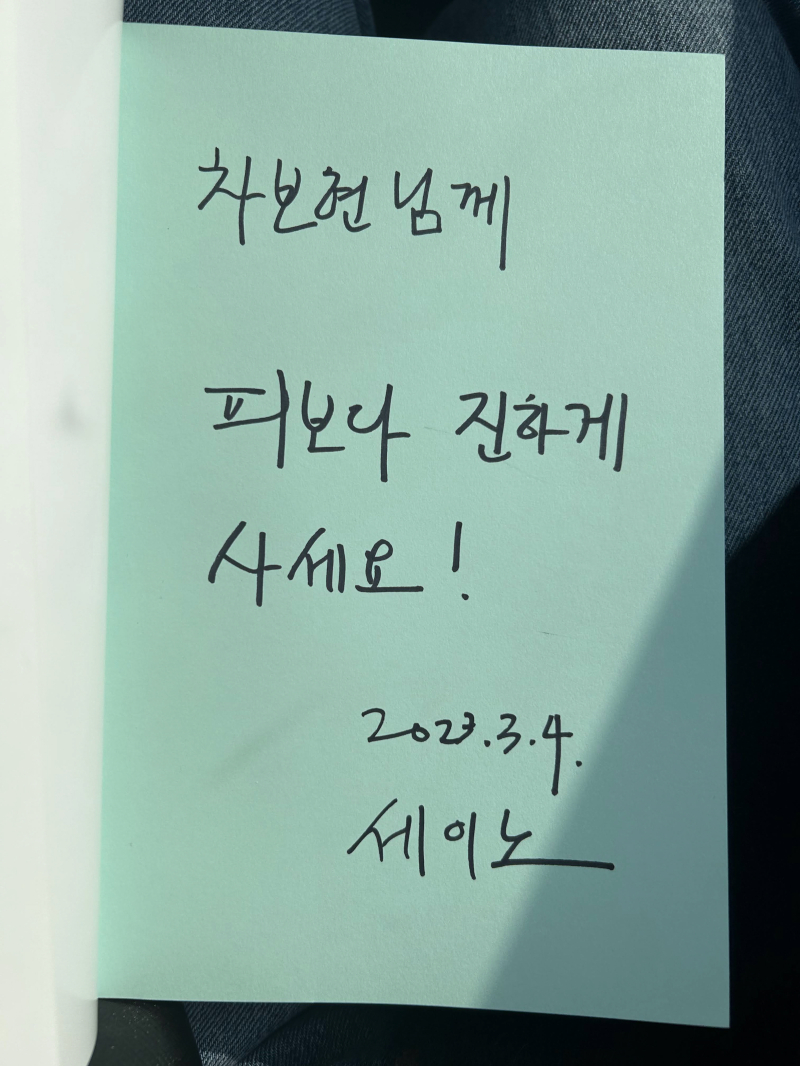 차보현님께
피보다 진하게
사세요!
2023.3.4.
세이노